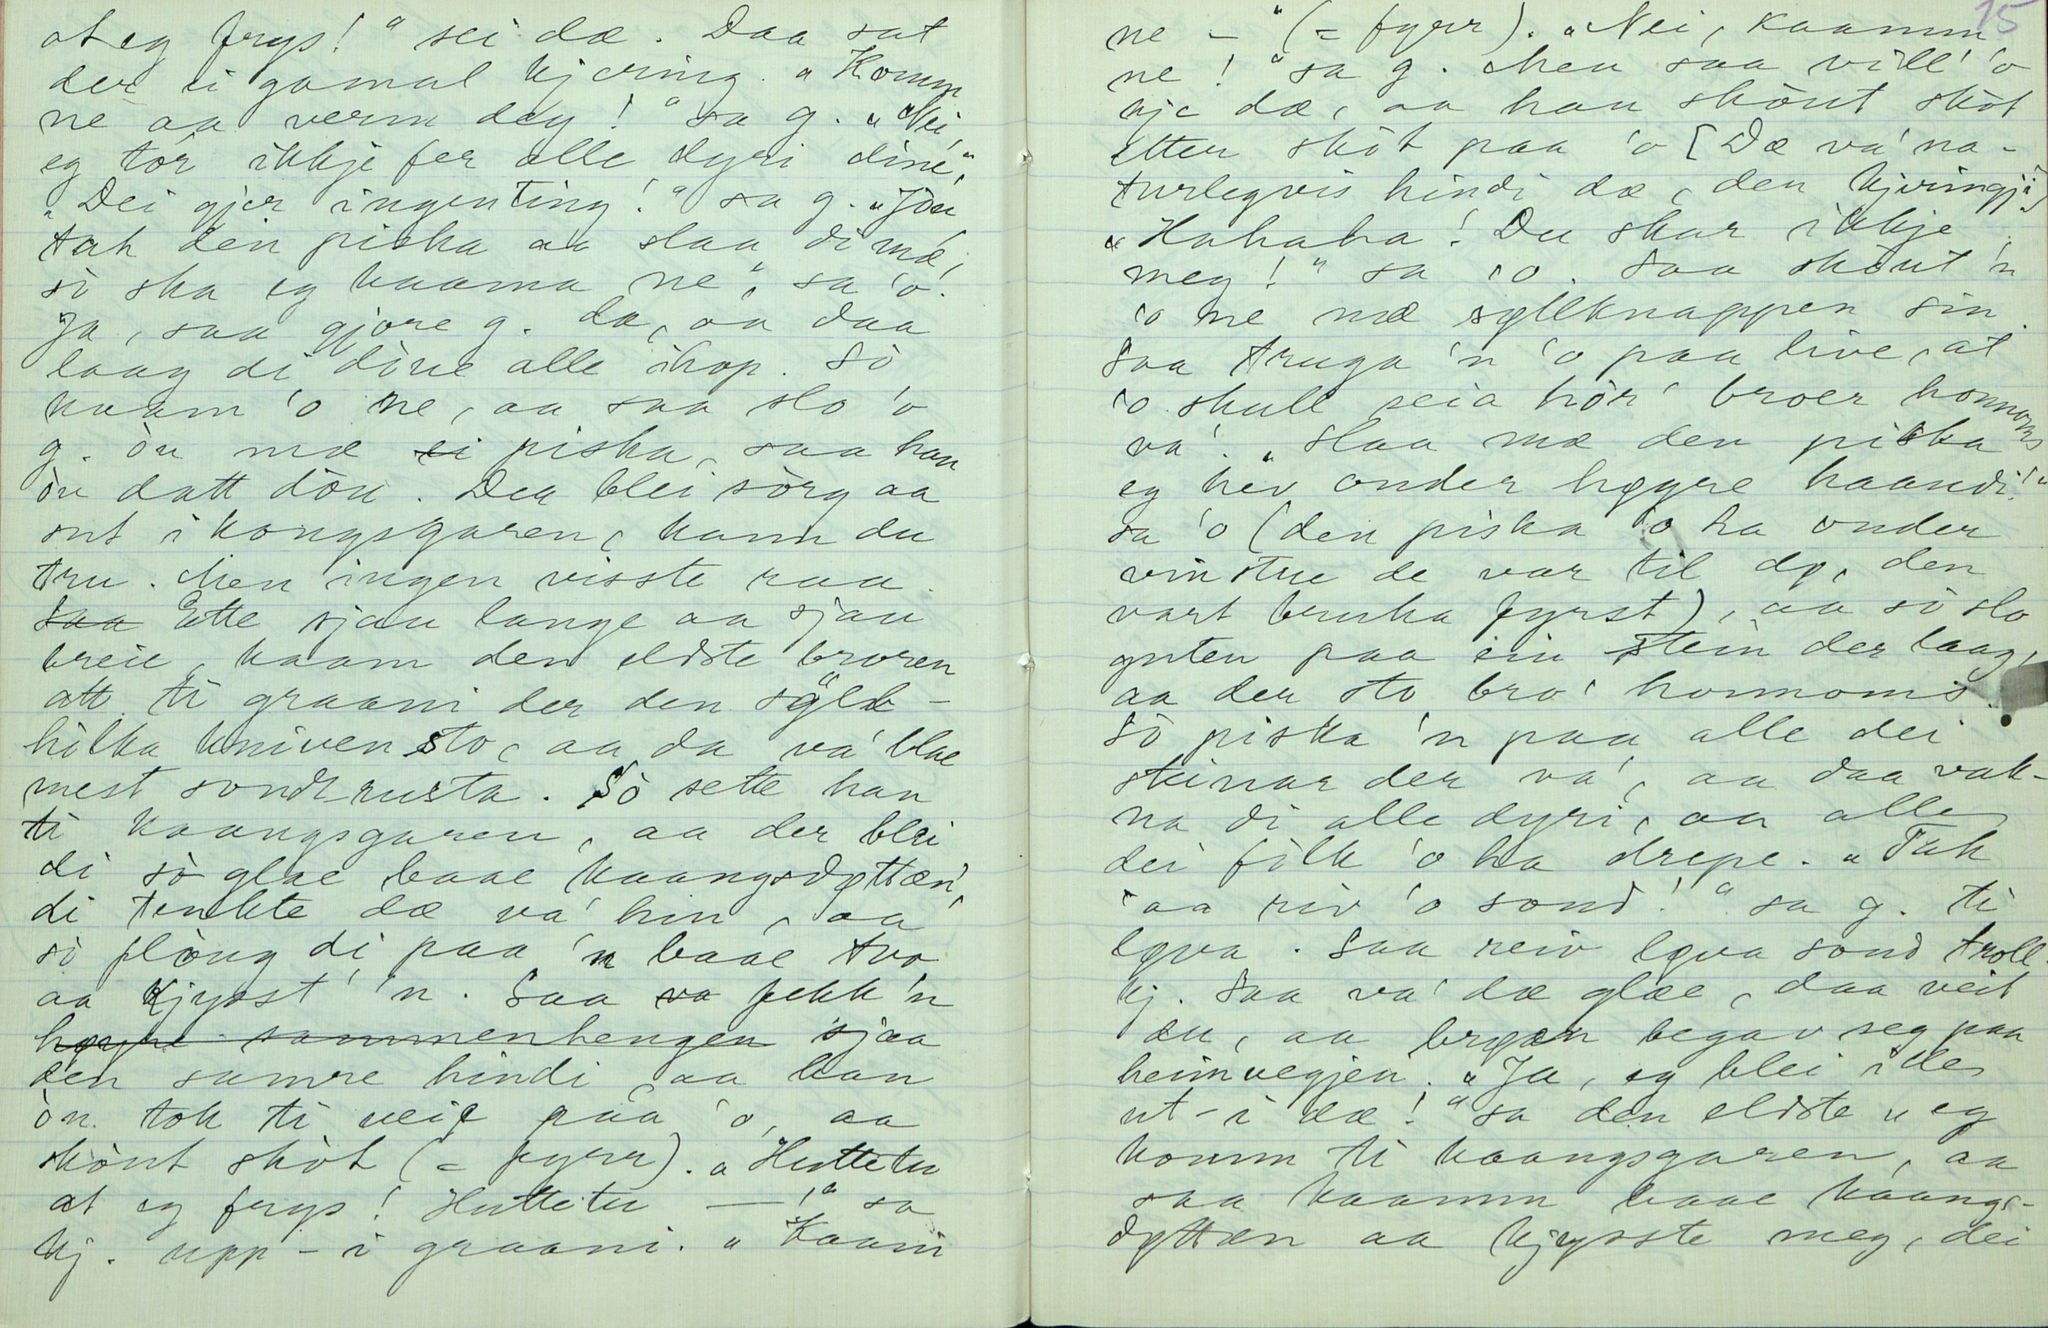 at eg frys!" sei dæ. Daa sat
der ei gamal kjering. "Komm
ne aa verm deg!" sa g. "Nei,
eg tór ikkje fer alle dyri dine,"
"Dei gjer ingenting!" sa g. "Jau
tak den piska aa slaa di mæ,
sò ska eg kaama ne," sa 'o.
Ja, saa gjore g. da, aa daa
laag di döue alle ihop. Sò
kaam 'o ne, aa saa slo 'o
g. òu mæ ei piska, saa han
òu datt dòu. Dea blei sörg aa
sut i kongsgaren, kann du
tru. Men ingen visste raa.
Saa Ette sjau lange aa sjau
breie, kaam den eldste broren
att ti graani der den sylv-
hilka kniven sto, aa da va' blae
mest sond-rusta. Sò sette han
ti kaangsgaren, aa der blei
di sò glae baae kaangsdøttæn,
di tenkte dæ va' hin, aa
sò flöug di paa 'n baae tvo
aa kjysst' 'n. Saa va fekk 'n
høyre sammenhengen sjaa
den samre hindi, aa han
òu tok ti veie paa 'o, aa
skòut skòt (= fyrr). "Huttetu
at eg frys! Huttetu —!" sa
kj. upp-i graani. "Kaam
15
ne –" (= fyrr). "Nei, kaamm
ne!" sa g. Men saa vill' 'o
kje dæ, aa han skòut skòt
etter skòt paa 'o [Dæ va' na-
turlegvis hindi dæ, den kjeringji]
"Hahaha! Du skar ikkje
meg!" sa 'o. Saa skòut 'n
'o ne mæ syllknappen sin.
Saa truga 'n 'o paa live, at
'o skull seia hòr' broer honnoms
va'. "Slaa mæ den piska
eg hev onder høgre haandi!"
sa 'o (den piska 'o ha onder
vinstre de var til dø, den
vart bruka fyrst), aa sò slo
guten paa ein stein der laag,
aa der sto bro' honnoms.
Sò piska 'n paa alle dei
steinar der va', aa daa vak-
na di alle dyri, aa alle
dei fòlk 'o ha drepe. "Tak
aa riv 'o sond!" sa g. ti
løva. Saa reiv løva sond troll-
kj. Saa va' dæ glæe, daa veit
du, aa brøæn begav seg paa
heimvegjen. "Ja, eg blei ille
ut-i dæ!" sa den eldste "eg
komm ti kaangsgaren, aa
saa kaamm baae kaangs-
døttæn aa kjysste meg, dei